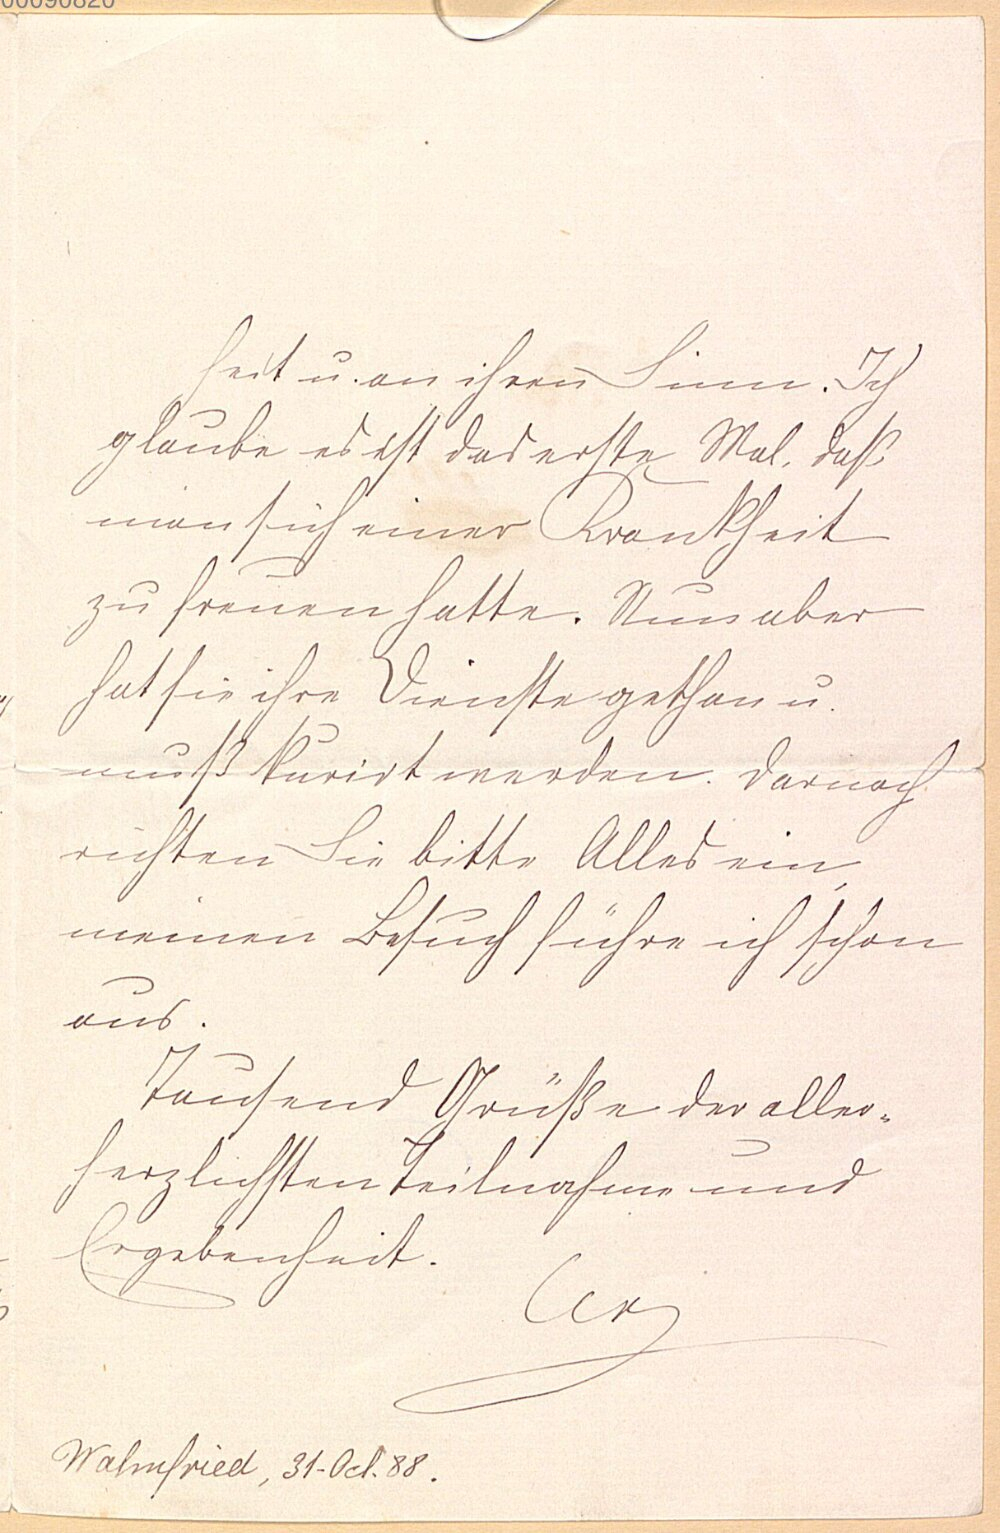 00090820
heit u. an ihren Sinn. Ich
glaube es ist das erste Mal, daß
man sich einer Krankheit
zu freuen hatte. Nun aber
hat sie ihre Dienste gethan u.
muß kurirt werden. Darnach
richten Sie bitte Alles ein,
meinen Besuch führe ich schon
aus.
Tausend Grüße der aller-
herzlichsten Teilnahme und
Ergebenheit.
Wahnfried, 31. Oct. 88.